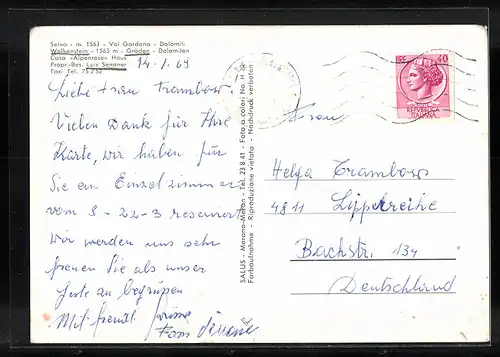 Selva - m. 1563 - Val Gardena - Dolomiti
Wolkenstein - 1563 m - Gröden - Dolomiten
Casa «Alpenrose» Haus
Propr.-Bes. Luis Senoner
Taxi Tel. 75 2 52
14.1.69
Liebe Frau Trambow.
Vielen Dank für Ihre
Karte, wir haben für
Sie ein Einzelzimmer
vom 3-22-3 reserviert
wir werden uns sehr
freuen Sie als unser
Gaste zu begrüßen
Mit freudl. Grüsse
Fam Senoner
SALUS - Merano-Meran - Tel. 23 8 41 - Foto a colori No. H
Farbaufnahme - Riproduzione vietata - Nachdruck verboten
40
REPUBBLICA
ITALIANA
Frau
Helga Trambow
4811 Lippereihe
Bachstr. 134
Deutschland